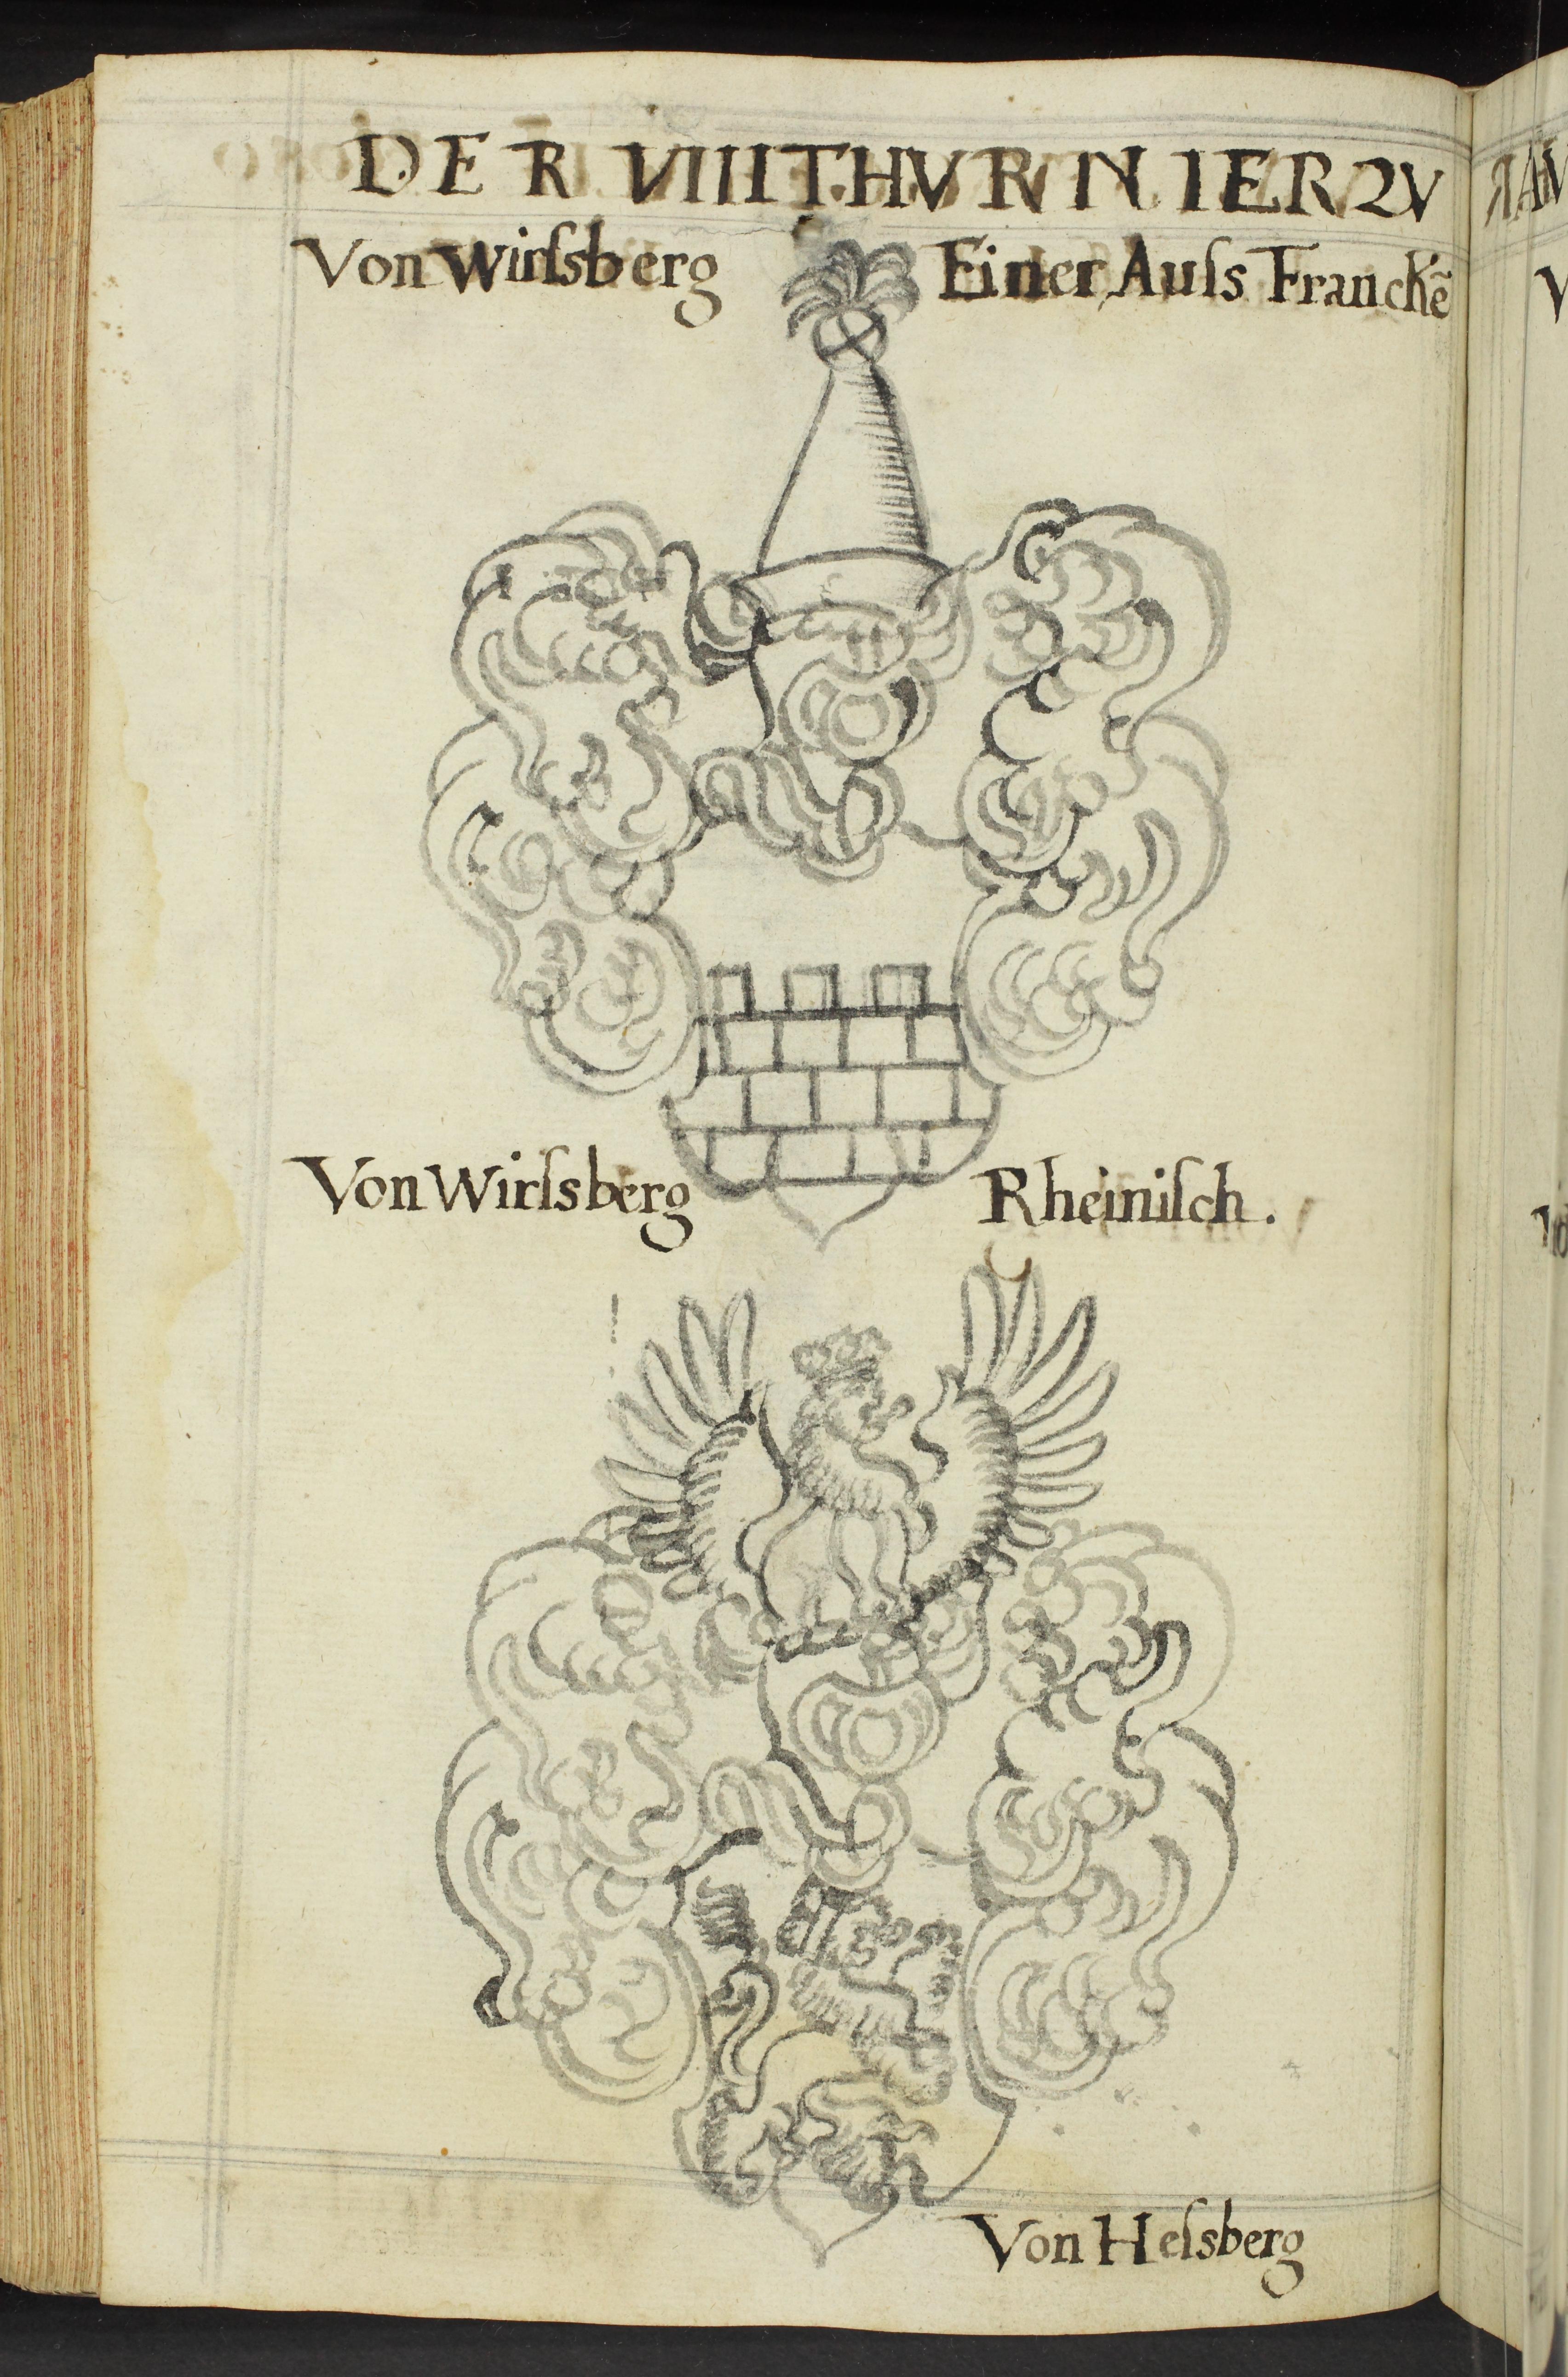 DER VIIII THVRNIER ZV
Von Wirſsberg
Einer Auſs Franckẽ
Von Wirſsberg
Rheiniſch.
Von Heſsberg